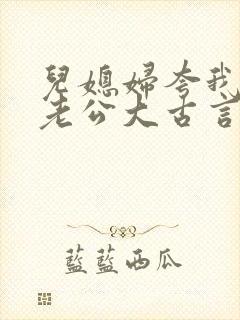 兒媳婦夸我
老公大古言
藍藍西瓜